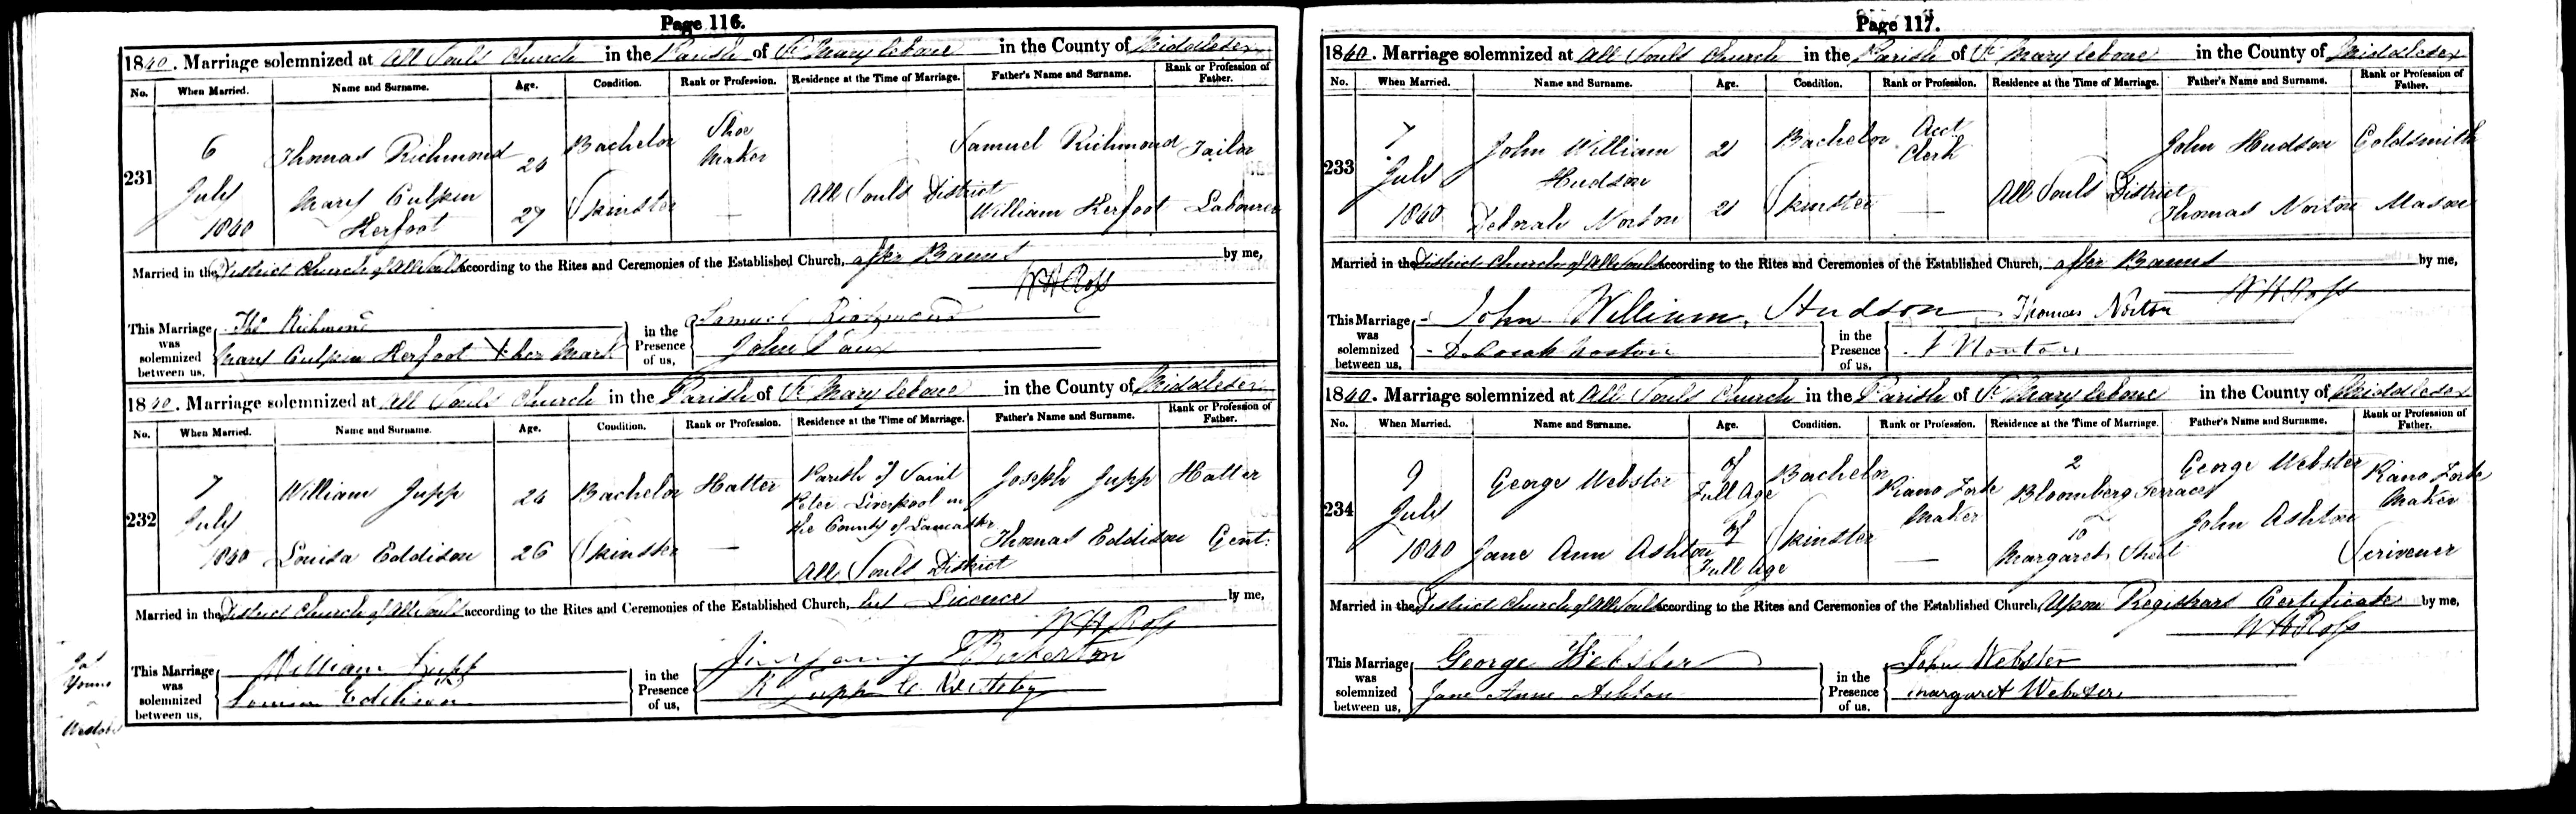 Page 116.
1840. Marriage solemnized at All Souls Church in the Parish of St Marylebone in the County of Middlesex
No. When Married. Name and Surname. Age. Condition. Rank or Profession. Residence at the Time of Marriage. Father's Name and Surname. Rank or Profession of Father.
231
6 July 1840
Thomas Richmond 24 Bachelor Shoe Maker Samuel Richmond Tailor
All Souls District
Mary Culpin Kerfoot 27 Spinster — William Kerfoot Labourer
Married in the District Church of All Souls according to the Rites and Ceremonies of the Established Church, after Banns by me,
W H Ross
This Marriage was solemnized between us, Thos Richmond
Mary Culpin Kerfoot X her Mark
in the Presence of us, Samuel Richmond
John
1840. Marriage solemnized at All Souls Church in the Parish of St Marylebone in the County of Middlesex
No. When Married. Name and Surname. Age. Condition. Rank or Profession. Residence at the Time of Marriage. Father's Name and Surname. Rank or Profession of Father.
232
7 July 1840
William Jupp 24 Bachelor Hatter Parish of Saint Peter Liverpool in the County of Lancaster Joseph Jupp Hatter
Louisa Eddison 26 Spinster — All Souls District Thomas Eddison Gent:
Married in the District Church of All Souls according to the Rites and Ceremonies of the Established Church, by Licence by me,
W H Ross
This Marriage was solemnized between us, William Jupp
Louisa Eddison
in the Presence of us,
R Jupp
Page 117.
1840. Marriage solemnized at All Souls Church in the Parish of St Marylebone in the County of Middlesex
No. When Married. Name and Surname. Age. Condition. Rank or Profession. Residence at the Time of Marriage. Father's Name and Surname. Rank or Profession of Father.
233
7 July 1840
John William Hudson 21 Bachelor Acct Clerk John Hudson Goldsmith
All Souls District
Deborah Norton 21 Spinster — Thomas Norton Mason
Married in the District Church of All Souls according to the Rites and Ceremonies of the Established Church, after Banns by me,
W H Ross
This Marriage was solemnized between us, John William Hudson
Deborah Norton
in the Presence of us, Thomas Norton
Norton
1840. Marriage solemnized at All Souls Church in the Parish of St Marylebone in the County of Middlesex
No. When Married. Name and Surname. Age. Condition. Rank or Profession. Residence at the Time of Marriage. Father's Name and Surname. Rank or Profession of Father.
234
9 July 1840
George Webster of Full Age Bachelor Piano Forte Maker 2 Bloomberg Terrace George Webster Piano Forte Maker
Jane Ann Ashton of Full Age Spinster — 10 Margaret Street John Ashton Scrivener
Married in the District Church of All Souls according to the Rites and Ceremonies of the Established Church, Upon Registrars Certificate by me,
W H Ross
This Marriage was solemnized between us, George Webster
Jane Anne Ashton
in the Presence of us, John Webster
Margaret Webster